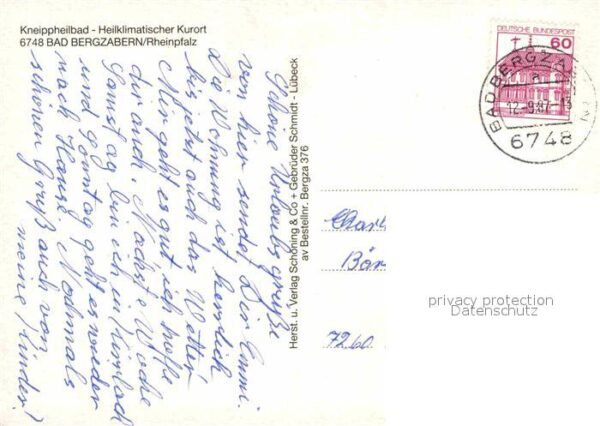 Kneippheilbad - Heilklimatischer Kurort
6748 BAD BERGZABERN/Rheinpfalz
Schöne Urlaubsgrüße
von hier sendet Dir Emmi.
Die Wohnung ist herrlich
bis jetzt auch das Wetter
Mir geht es gut ich hoffe
dir auch. Nächste Woche
Samstag bin ich in
und Sonntag geht es wieder
nach Hause. Nochmals
schönen Gruß auch von
meine Kinder!
Herst. u. Verlag Schöning & Co + Gebrüder Schmidt - Lübeck
av Bestellnr. Bergza 376
DEUTSCHE BUNDESPOST
60
BAD BERGZA
a
12.-9.87-13
6748
Bär
7260
privacy protection
Datenschutz